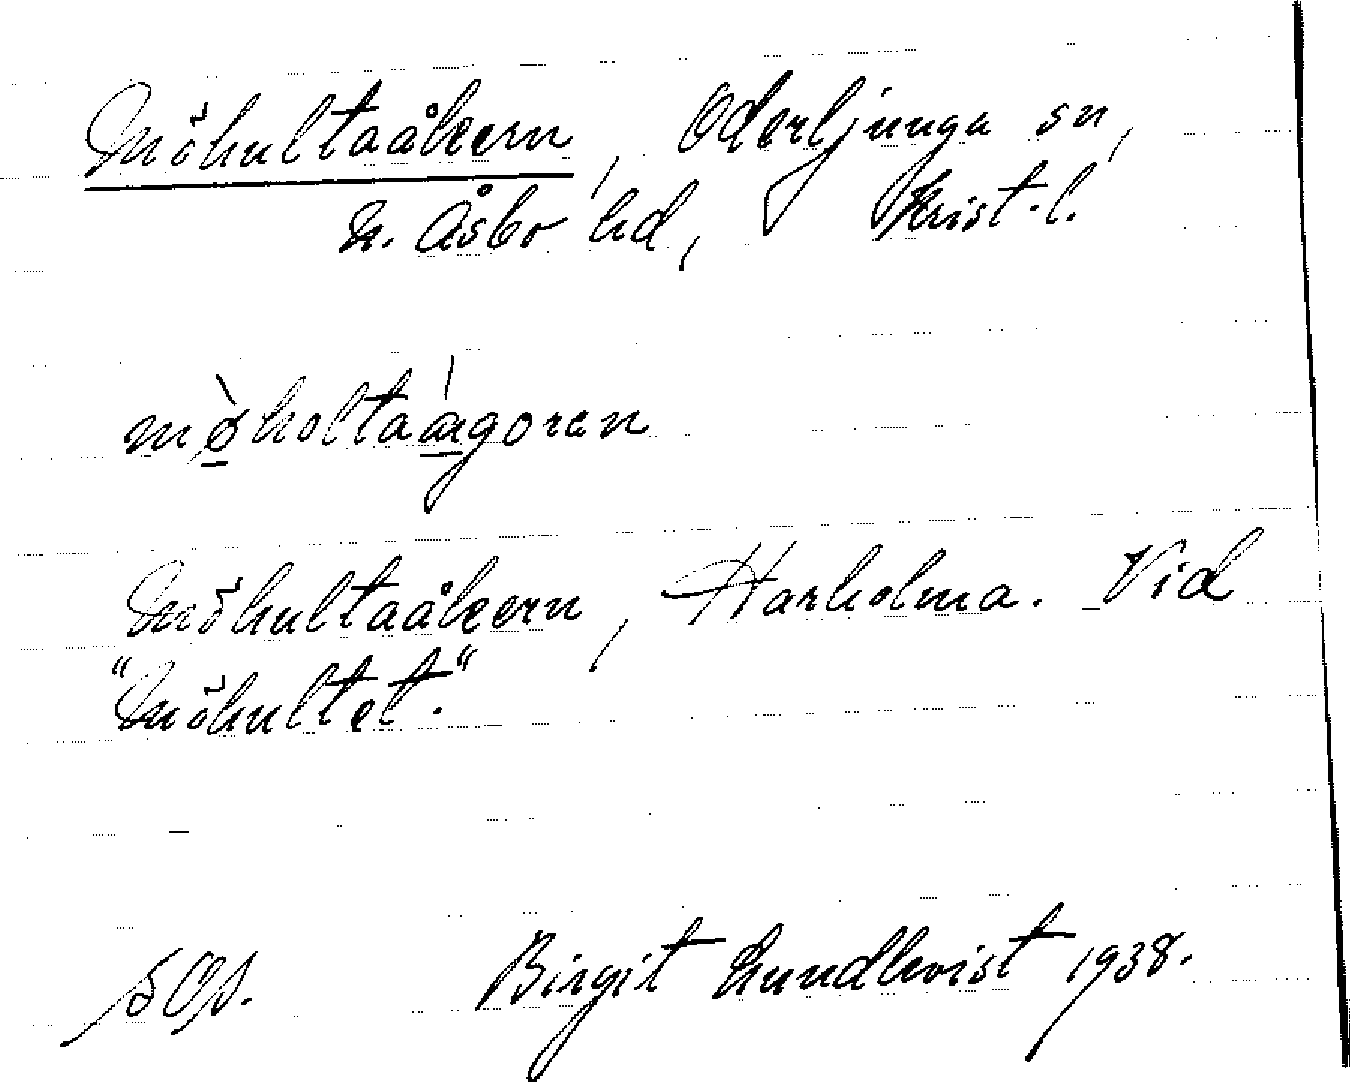 Möhultaåkern, Oderljunga sn,
N. Åsbo hd, Krist. l.
mø̀holtaágoren
Möhultaåkern, Harholma. Vid
"Möhultet."
Birgit Lundkvist 1938.